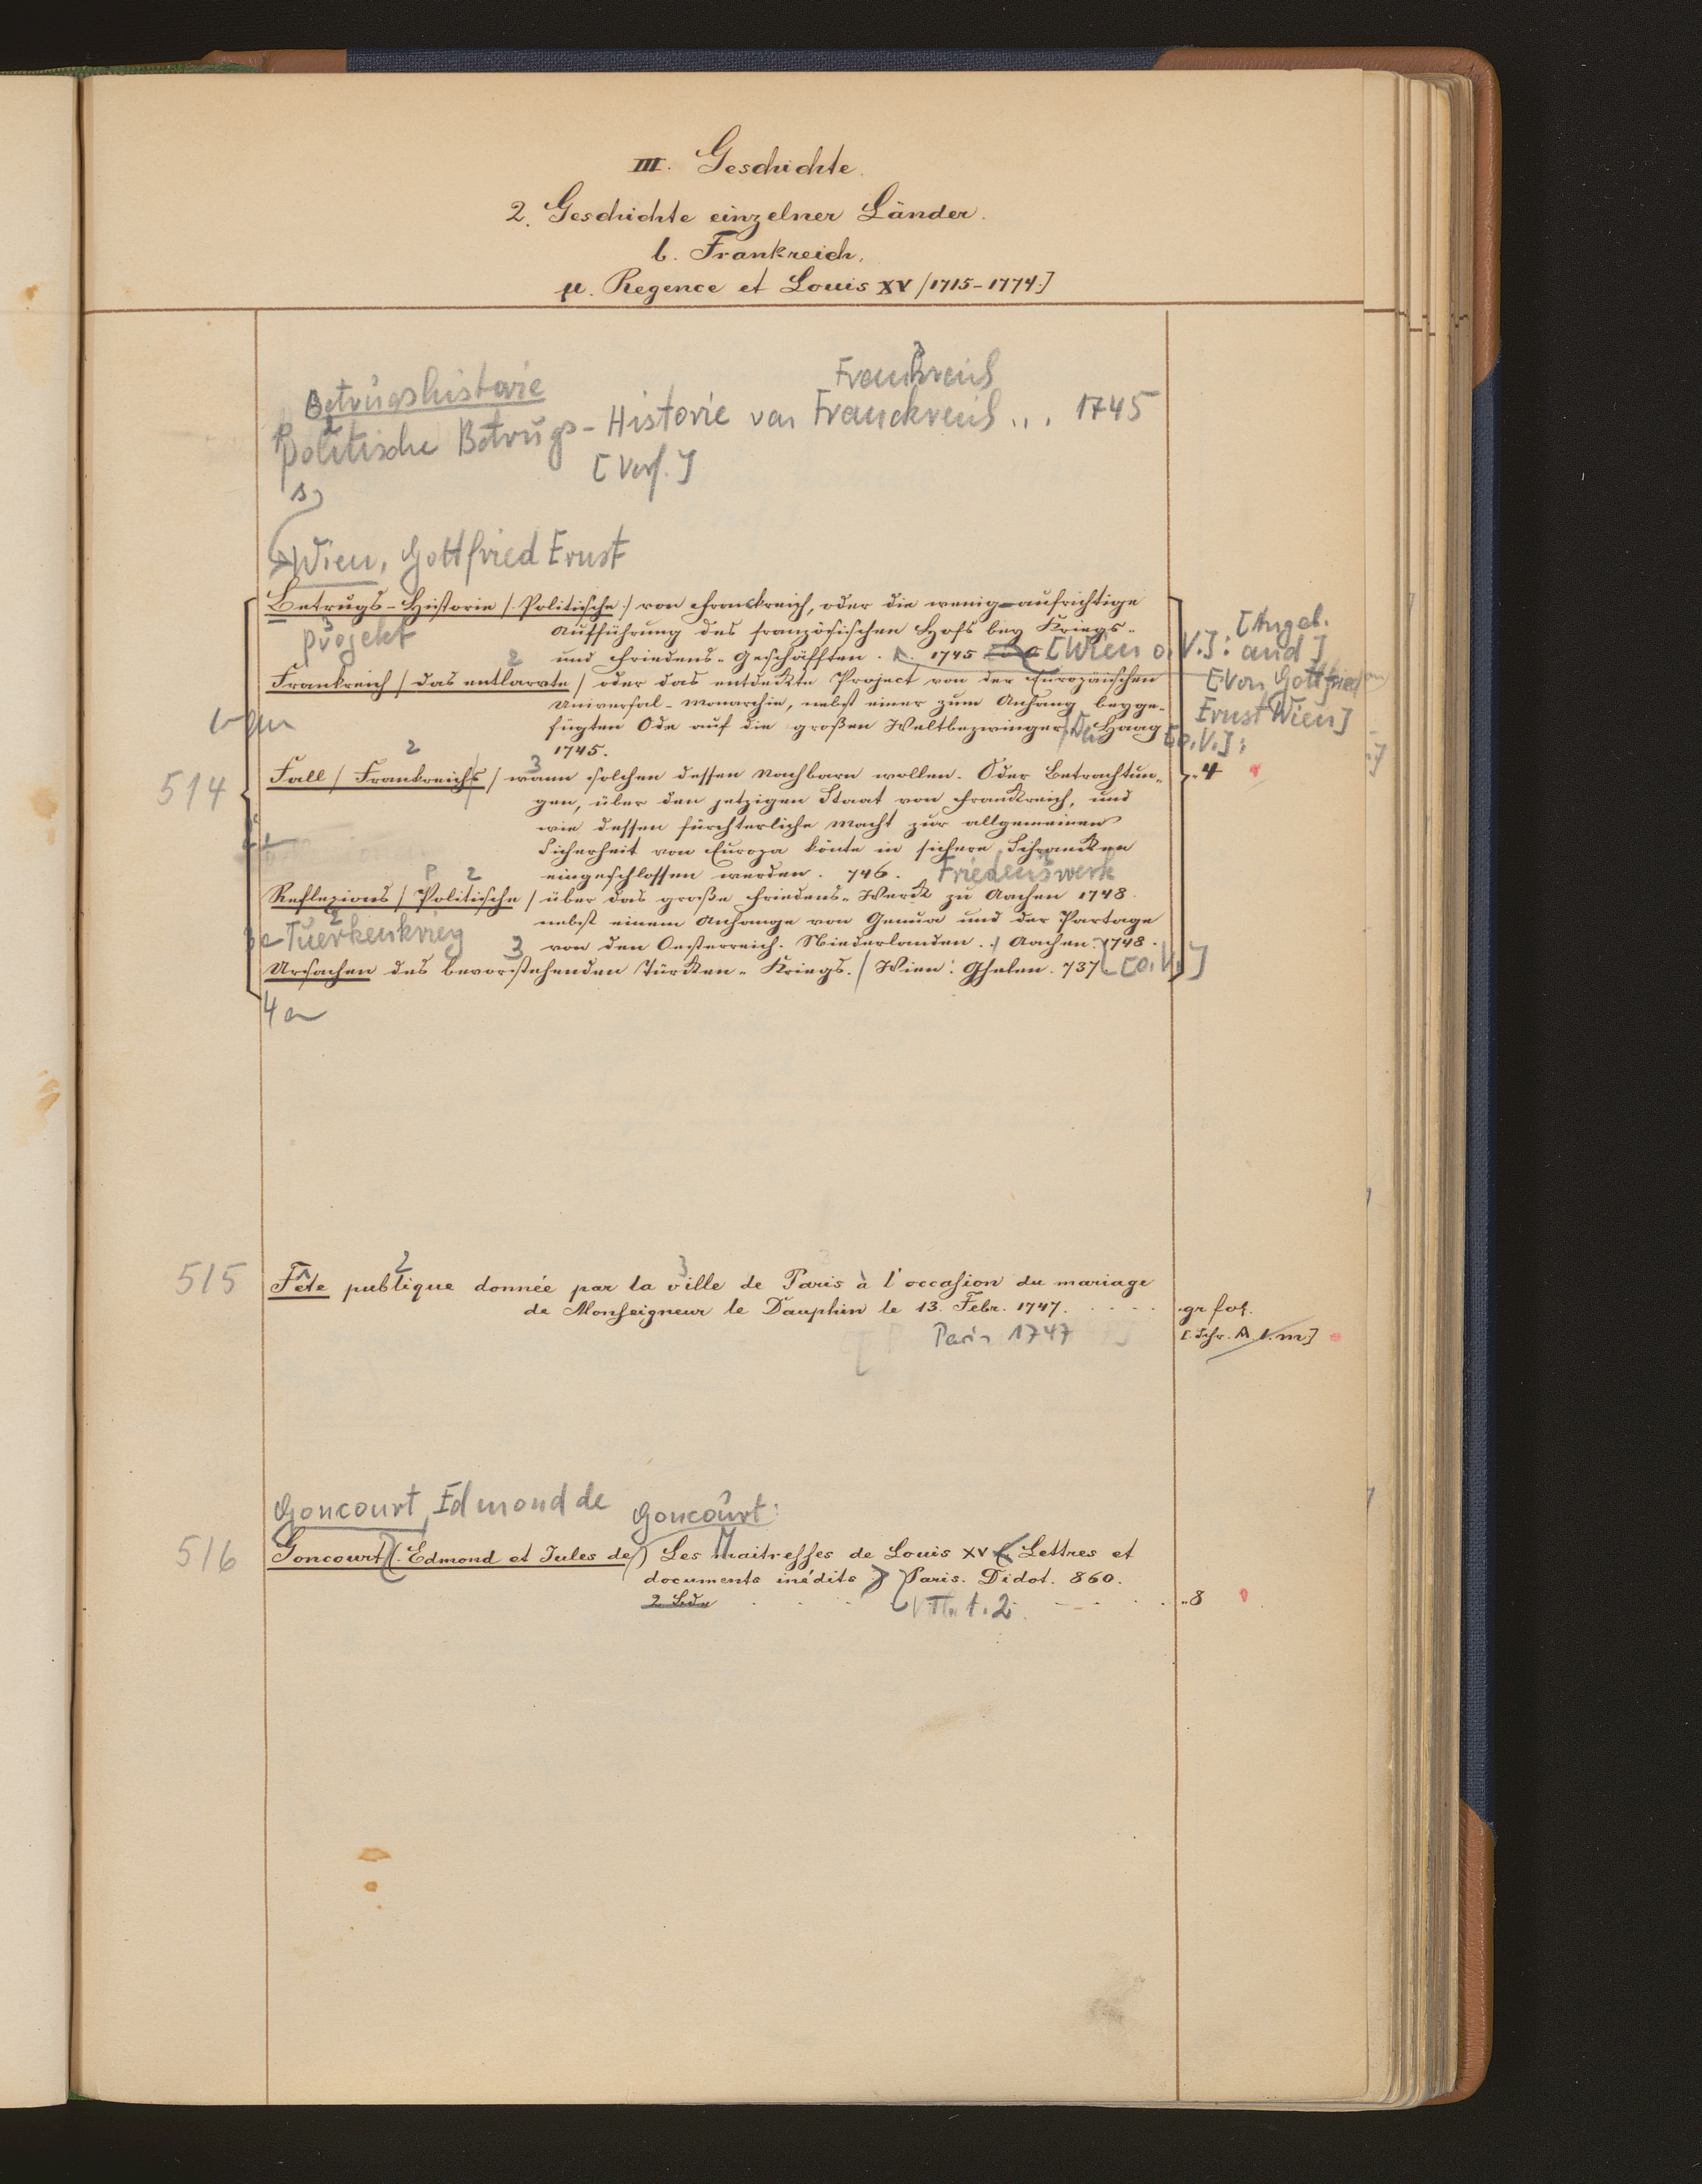 III. Geschichte.
2. Geschichte einzelner Länder.
b. Frankreich.
μ. Regence et Louis XV /1715-1774.]
Betrugshistorie
Frankreich
politische Betrugs- Historie von Franckreich ... 1745
[Verf.]
Wien, Gottfried Ernst
Betrugs-Historie /: Politische :/ von Franckreich, oder die wenig aufrichtige
projekt
Aufführung des französischen Hofs bey Kriegs-
und Friedens-Geschäfften. 1745 [Wien o. V.]:
[Angeb.
and]
2
Frankreich / das entlarvte / oder das entdeckte Project von der Europäischen
[Von Gottfried
Universal-Monarchie, nebst einer zum Anhang beyge-
Ernst Wien]
fügten Ode auf die großen Weltbezwinger. Den Haag
[o. V.];
1745.
2
3
514
Fall / Frankreichs / wann solchen dessen Nachbarn wollen. Oder Betrachtun-
"4
gen, über den jetzigen Staat von Frankreich, und
wie dessen fürchterliche Macht zur allgemeinen
Sicherheit von Europa könte in sichere Schrancken
eingeschlossen werden. 746.
Friedenswerk
P 2
Reflexions / Politische / über das große Friedens-Werck zu Aachen 1748
nebst einem Anhange von Genua und der Partage
Tuerkenkrieg
3
von den Oesterreich. Niederlanden. Aachen. 1748.
Ursachen des bevorstehenden Türcken-Kriegs. / Wien: Ghelen. 737 [o. V.]
4 a
2
3
515
Fête publique donnée par la ville de Paris à l'occasion du mariage
de Monseigneur le Dauphin le 13. Febr. 1747.
gr fol.
Paris 1747
[Schr. A. l. m]
Goncourt, Edmond de
Goncourt:
516
Goncourt (Edmond et Jules de) Les Maitresses de Louis XV Lettres et
documents inédits Paris. Didot. 860.
2 Bde
t. 2.
"8